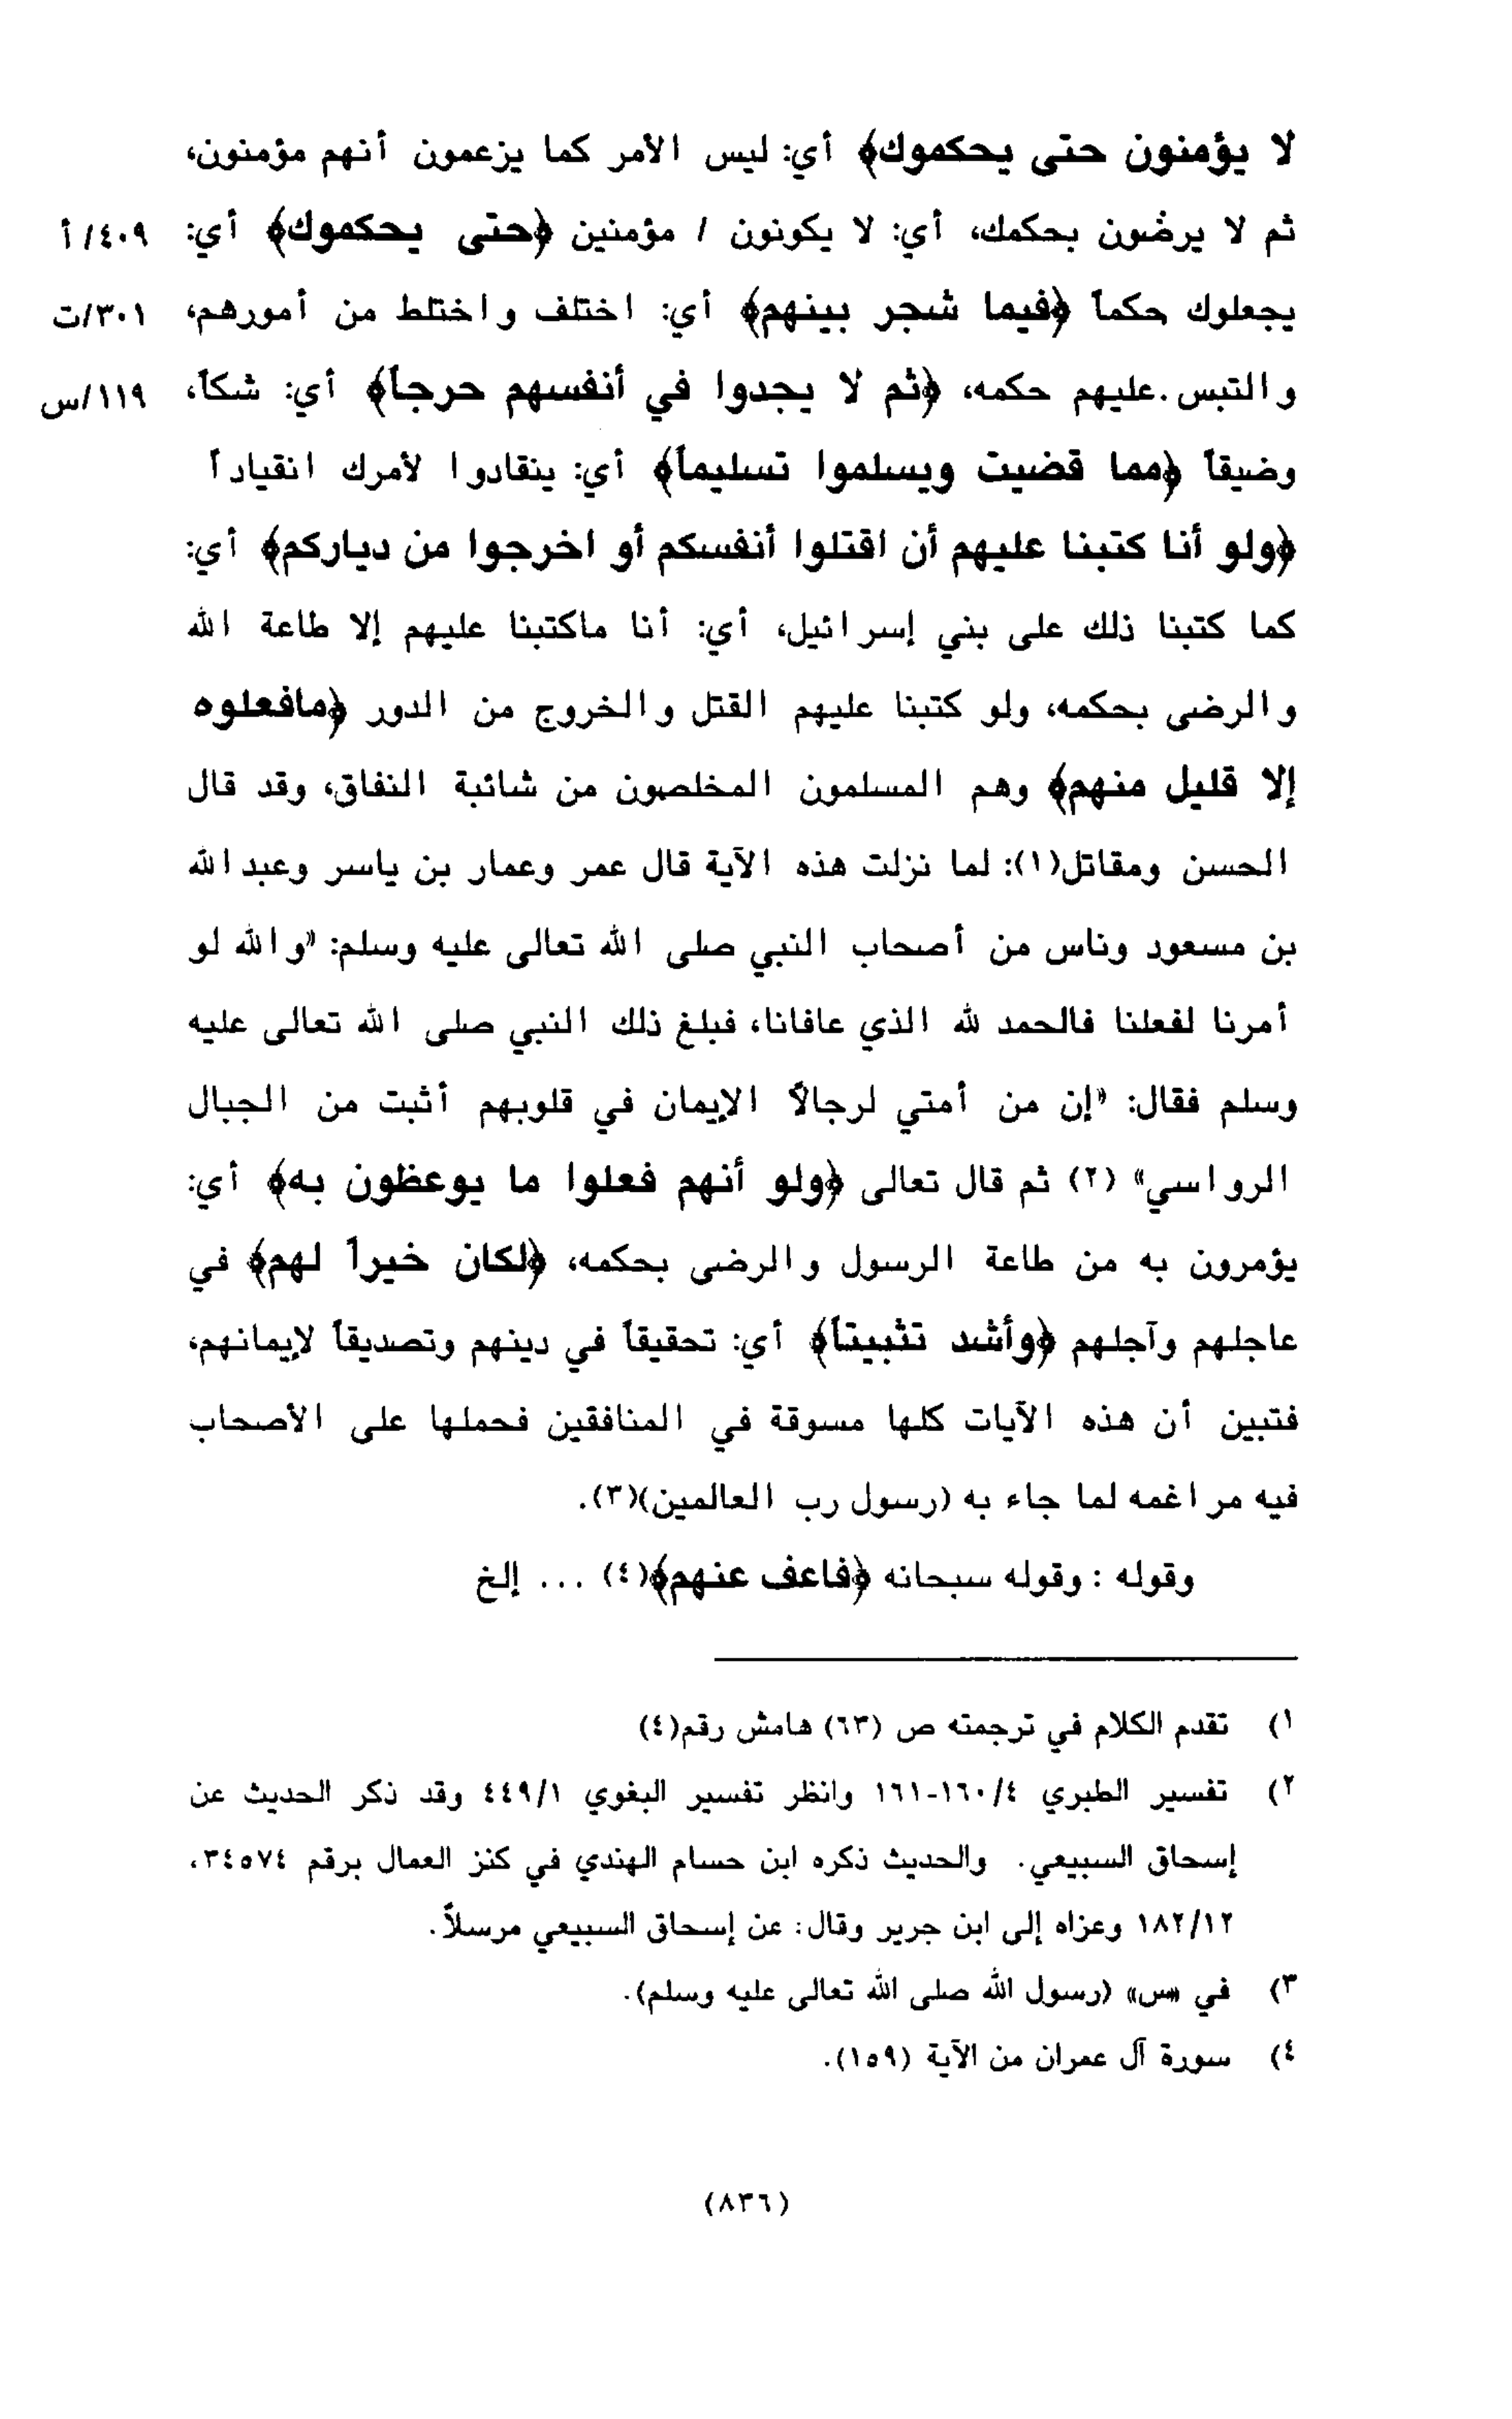 لا يؤمنون حتى يحكموك﴾ أي: ليس الأمر كما يزعمون أنهم مؤمنون،
ثم لا يرضون بحكمك، أي: لا يكونون / مؤمنين ﴿حتى يحكموك﴾ أي: ٤٠٩/أ
يجعلوك حكماً ﴿فيما شجر بينهم﴾ أي: اختلف واختلط من أمورهم، ٣٠١/ت
والتبس.عليهم حكمه، ﴿ثم لا يجدوا في أنفسهم حرجاً﴾ أي: شكاً، ١١٩/س
وضيقاً ﴿مما قضيت ويسلموا تسليماً﴾ أي: ينقادوا لأمرك انقياداً
﴿ولو أنا كتبنا عليهم أن اقتلوا أنفسكم أو اخرجوا من دياركم﴾ أي:
كما كتبنا ذلك على بني إسرائيل، أي: أنا ماكتبنا عليهم إلا طاعة الله
والرضى بحكمه، ولو كتبنا عليهم القتل والخروج من الدور ﴿مافعلوه
إلا قليل منهم﴾ وهم المسلمون المخلصون من شائبة النفاق، وقد قال
الحسن ومقاتل(١): لما نزلت هذه الآية قال عمر وعمار بن ياسر وعبدالله
بن مسعود وناس من أصحاب النبي صلى الله تعالى عليه وسلم: «والله لو
أمرنا لفعلنا فالحمد لله الذي عافانا، فبلغ ذلك النبي صلى الله تعالى عليه
وسلم فقال: «إن من أمتي لرجالاً الإيمان في قلوبهم أثبت من الجبال
الرواسي» (٢) ثم قال تعالى ﴿ولو أنهم فعلوا ما يوعظون به﴾ أي:
يؤمرون به من طاعة الرسول والرضى بحكمه، ﴿لكان خيراً لهم﴾ في
عاجلهم وآجلهم ﴿وأشد تثبيتاً﴾ أي: تحقيقاً في دينهم وتصديقاً لإيمانهم،
فتبين أن هذه الآيات كلها مسوقة في المنافقين فحملها على الأصحاب
فيه مراغمه لما جاء به (رسول رب العالمين)(٣).
وقوله : وقوله سبحانه ﴿فاعف عنهم﴾(٤) ... إلخ
١) تقدم الكلام في ترجمته ص (٦٣) هامش رقم(٤)
٢) تفسير الطبري ٤/١٦٠-١٦١ وانظر تفسير البغوي ٤٤٩/١ وقد ذكر الحديث عن
إسحاق السبيعي. والحديث ذكره ابن حسام الهندي في كنز العمال برقم ٣٤٥٧٤،
١٨٢/١٢ وعزاه إلى ابن جرير وقال: عن إسحاق السبيعي مرسلاً.
٣) في «س» (رسول الله صلى الله تعالى عليه وسلم).
٤) سورة آل عمران من الآية (١٥٩).
(٨٣٦)